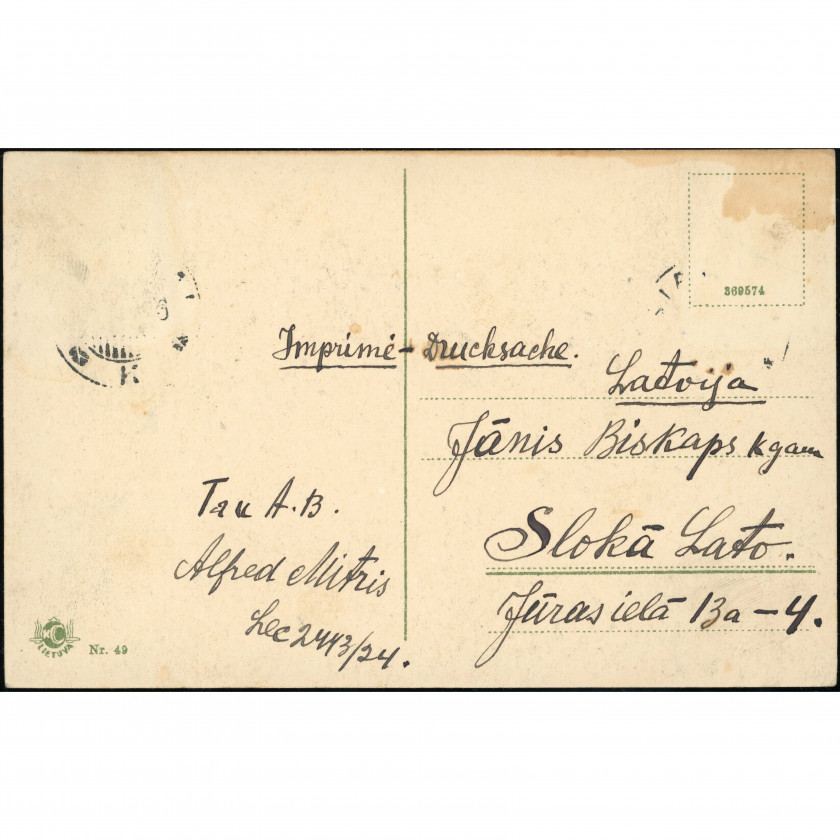 369574
Imprimé - Drucksache.
Latvija
Jānis Biskaps kgam
Slokā Lato.
Jūras ielā 13a-4.
Tau A.B.
Alfred Mitris
2443/24.
LIETUVA
Nr. 49
K